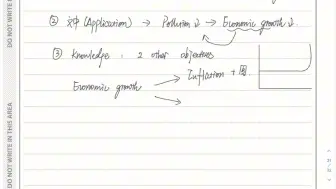 ② 对中 (Application) → Pollution ↓ → Economic growth ↓.
③ Knowledge : 2 other objectives
Economic growth → Inflation + 图.
→
DO NOT WRITE IN THIS AREA
DO NOT WRITE